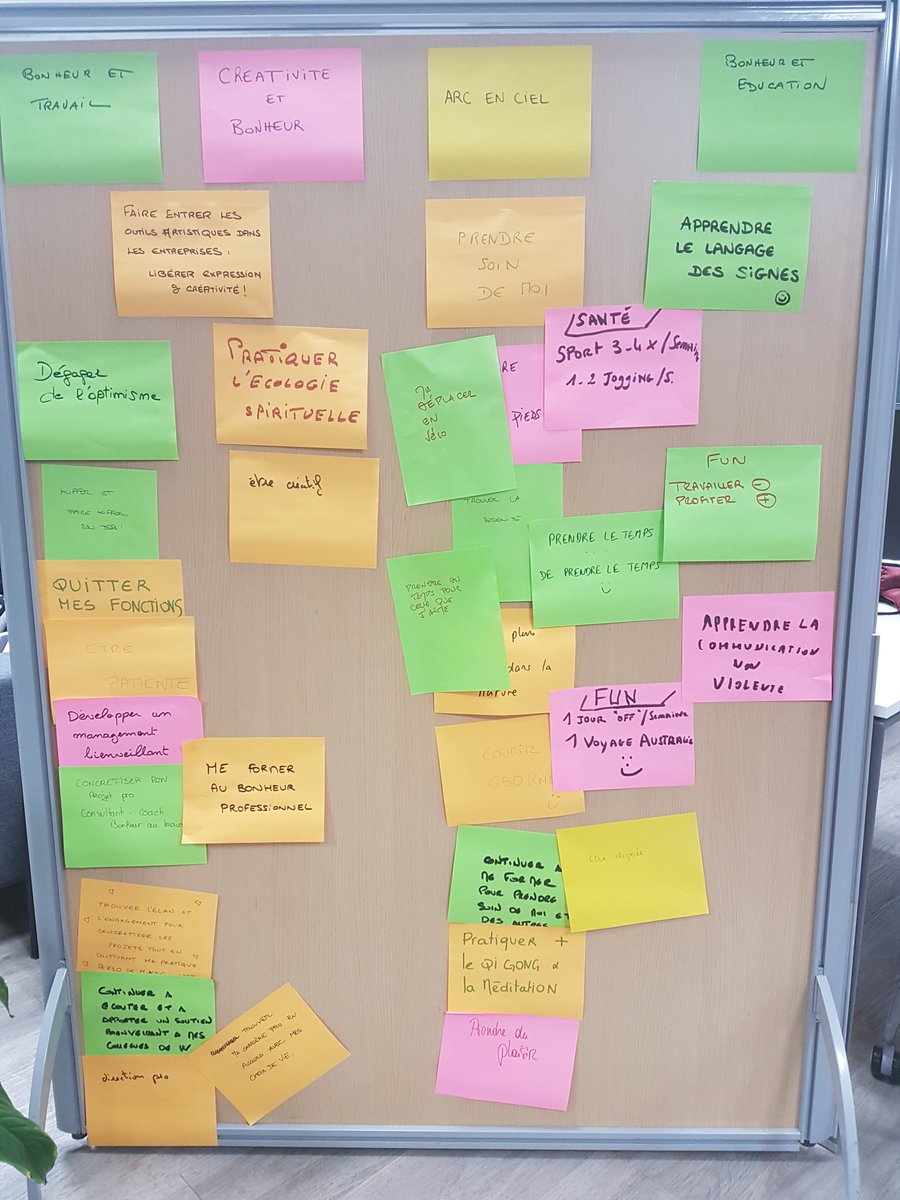 BONHEUR ET
TRAVAIL
CREATIVITE
ET
BONHEUR
ARC EN CIEL
BONHEUR ET
EDUCATION
FAIRE ENTRER LES
OUTILS ARTISTIQUES DANS
LES ENTREPRISES :
LIBÉRER EXPRESSION
& CRÉATIVITÉ !
PRENDRE
SOIN
DE MOI
APPRENDRE
LE LANGAGE
DES SIGNES
Dégager
de l'optimisme
PRATIQUER
L'ECOLOGIE
SPIRITUELLE
ME
DÉPLACER
EN
VÉLO
RE
PIEDS
SANTÉ
SPORT 3-4 X/SEMAIN
1-2 JOGGING/S.
KIFFER ET
FAIRE KIFFER
SON JOB !
être créatif
TROUVER LA
SÉRÉNITÉ
PRENDRE LE TEMPS
...
DE PRENDRE LE TEMPS
FUN
TRAVAILLER -
PROFITER +
QUITTER
MES FONCTIONS
ETRE
PATIENTE
Développer un
management
bienveillant
CONCRETISER MON
PROJET pro
Consultant - coach
Bonheur au travail
ME FORMER
AU BONHEUR
PROFESSIONNEL
PRENDRE DU
TEMPS POUR
CEUX QUE
J'AIME
plus
dans la
nature
APPRENDRE LA
COMMUNICATION
NON
VIOLENTE
FUN
1 JOUR "OFF"/SEMAINE
1 VOYAGE AUSTRALIE
COURIR
650 KMS
CONTINUER A
ME FORMER
POUR PRENDRE
SOIN DE MOI ET
DES AUTRES
être aligné
Pratiquer +
le QI GONG &
la MéditATION
Prendre du
plaisir
TROUVER L'ÉLAN ET
L'ENGAGEMENT POUR
CONCRETISER LES
PROJETS TOUT EN
CULTIVANT MA PRATIQUE
PERSO DE
CONTINUER A
ECOUTER ET A
APPORTER UN SOUTIEN
BIENVEILLANT A MES
COLLEGUES DE W
TROUVER
MA CARRIÈRE PRO EN
ACCORD AVEC MES
CHOIX DE VIE.
direction pro